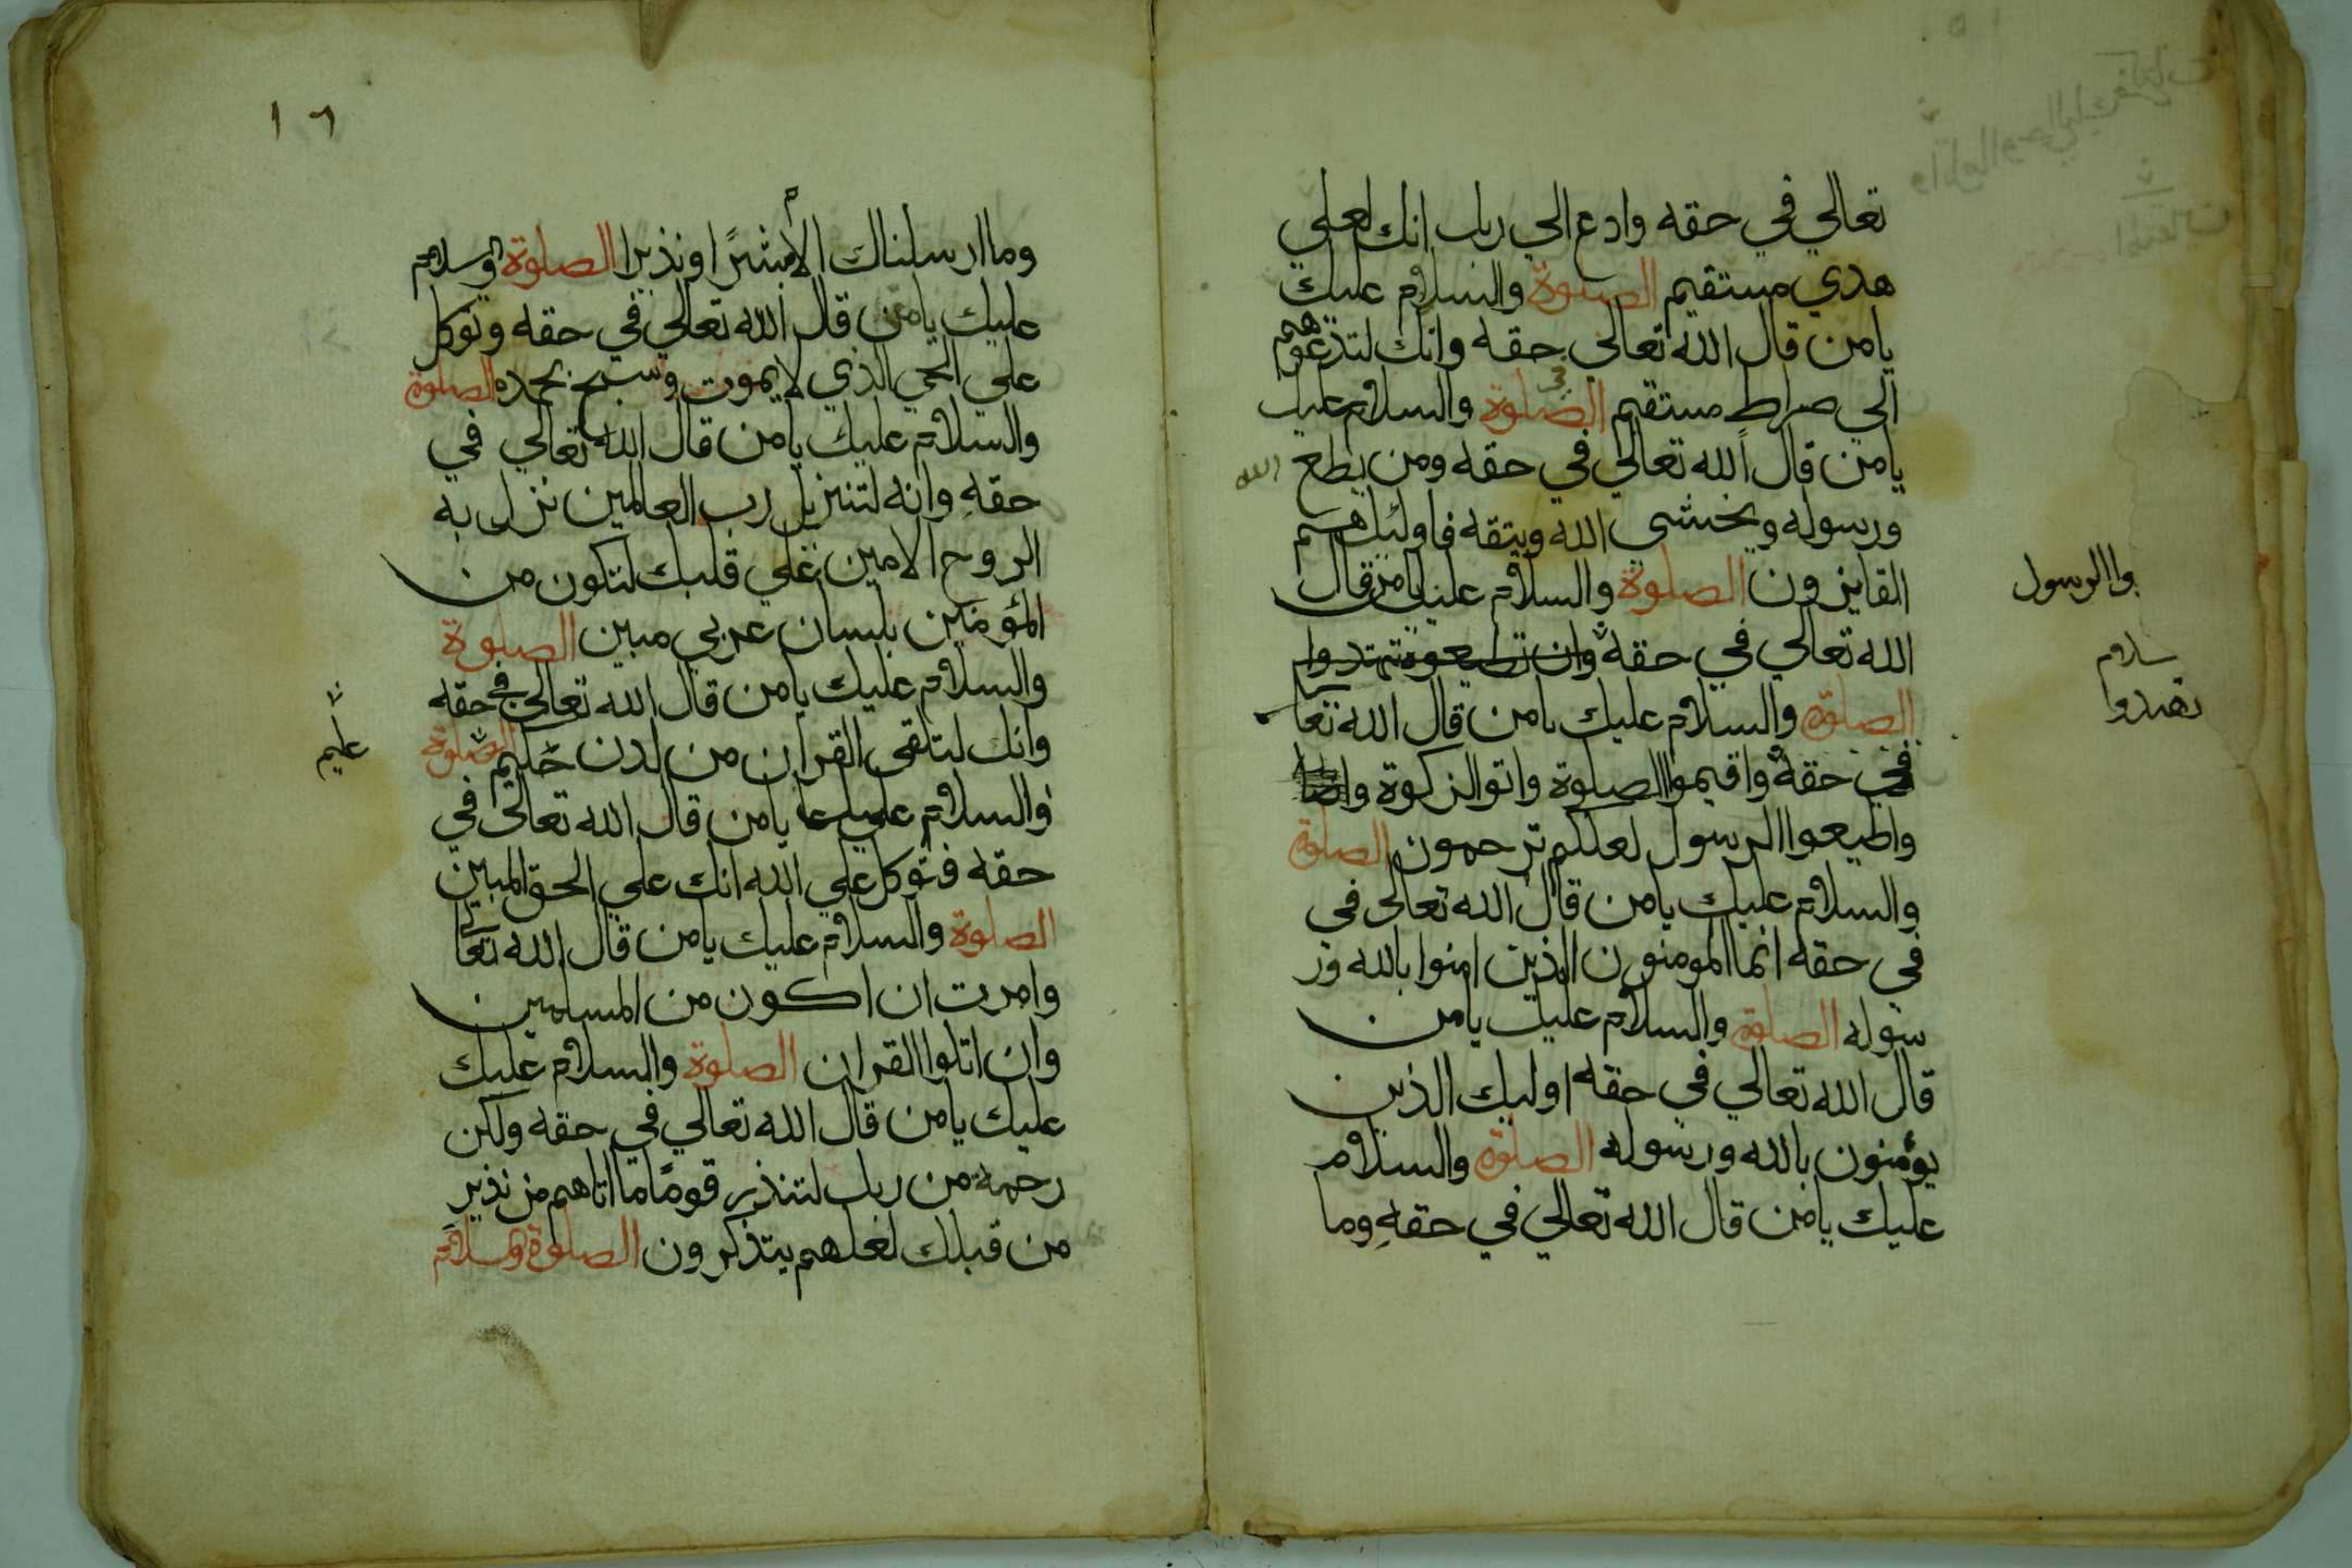 تعالي في حقه وادع الي ربك انك لعلي
هدي مستقيم الصلوة والسلام عليك
يامن قال الله تعالي حقه وانك لتدعوهم
الي صراط مستقيم الصلوة والسلام عليك
يامن قال الله تعالي في حقه ومن يطع الله
ورسوله ويخشي الله ويتقه فاوليك هم
الفايزون الصلوة والسلام عليك يامن قال
الله تعالي في حقه وان تطيعوه تهتدوا
الصلوة والسلام عليك يامن قال الله تعا
في حقه واقيموا الصلوة واتوا الزكوة
واطيعوا الرسول لعلكم ترحمون الصلوة
والسلام عليك يامن قال الله تعالي في
في حقه انما المومنون الذين امنوا بالله ور
سوله الصلوة والسلام عليك يامن
قال الله تعالي في حقه اوليك الذين
يؤمنون بالله ورسوله الصلوة والسلام
عليك يامن قال الله تعالي في حقه وما
والرسول
سلام
تهتدوا
١٦
وما ارسلناك الا مبشرًا ونذيرا الصلوة والسلام
عليك يامن قال الله تعالي في حقه وتوكل
علي الحي الذي لا يموت وسبح بحمده الصلوة
والسلام عليك يامن قال الله تعالي في
حقه وانه لتنزيل رب العالمين نزل به
الروح الامين علي قلبك لتكون من
المؤمنين بلسان عربي مبين الصلوة
والسلام عليك يامن قال الله تعالي في حقه
وانك لتلقي القران من لدن حكيم الصلوة
عليم
والسلام عليك يامن قال الله تعالي في
حقه فتوكل علي الله انك علي الحق المبين
الصلوة والسلام عليك يامن قال الله تعا
وامرت ان اكون من المسلمين
وان اتلوا القران الصلوة والسلام عليك
عليك يامن قال الله تعالي في حقه ولكن
رحمة من ربك لتنذر قومًا ما اتاهم من نذير
من قبلك لعلهم يتذكرون الصلوة والسلام